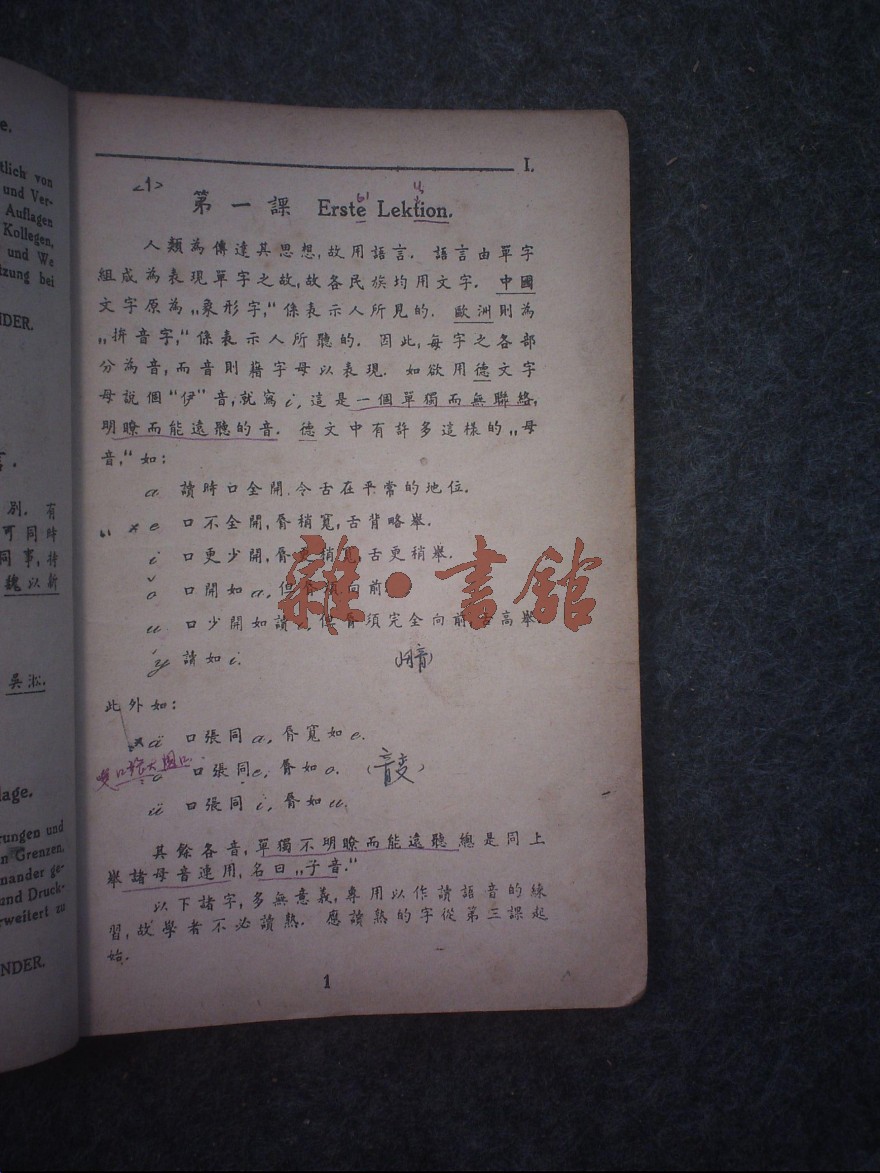 e.
tlich von
und Ver-
Auflagen
Kollegen,
und We
tzung bei
NDER.
別. 有
可同時
同事, 持
魏以新
吳淞.
lage.
rungen und
n Grenzen.
nander ge-
und Druck-
erweitert zu
NDER.
I.
<1>
第一課 Erste Lektion.
人類為傳達其思想, 故用語言. 語言由單字
組成為表現單字之故, 故各民族均用文字. 中國
文字原為„象形字,“ 係表示人所見的. 歐洲則為
„拼音字,“ 係表示人所聽的. 因此, 每字之各部
分為音, 而音則藉字母以表現. 如欲用德文字
母說個“伊”音, 就寫 i, 這是一個單獨而無聯絡,
明瞭而能遠聽的音. 德文中有許多這樣的„母
音,“ 如:
a 讀時口全開, 令舌在平常的地位.
e 口不全開, 脣稍寬, 舌背略舉.
i 口更少開, 脣更稍寬, 舌更稍舉.
o 口開如 a, 但脣須向前
u 口少開如讀 但脣須完全向前, 舌高舉.
y 讀如 i.
此外如:
ä 口張同 a, 脣寬如 e.
ö 口張同 e, 脣如 o. (音变)
ü 口張同 i, 脣如 u.
其餘各音, 單獨不明瞭而能遠聽總是同上
舉諸母音連用, 名曰„子音.“
以下諸字, 多無意義, 專用以作讀語音的練
習, 故學者不必讀熟. 應讀熟的字從第三課起
始.
1
雜·書館